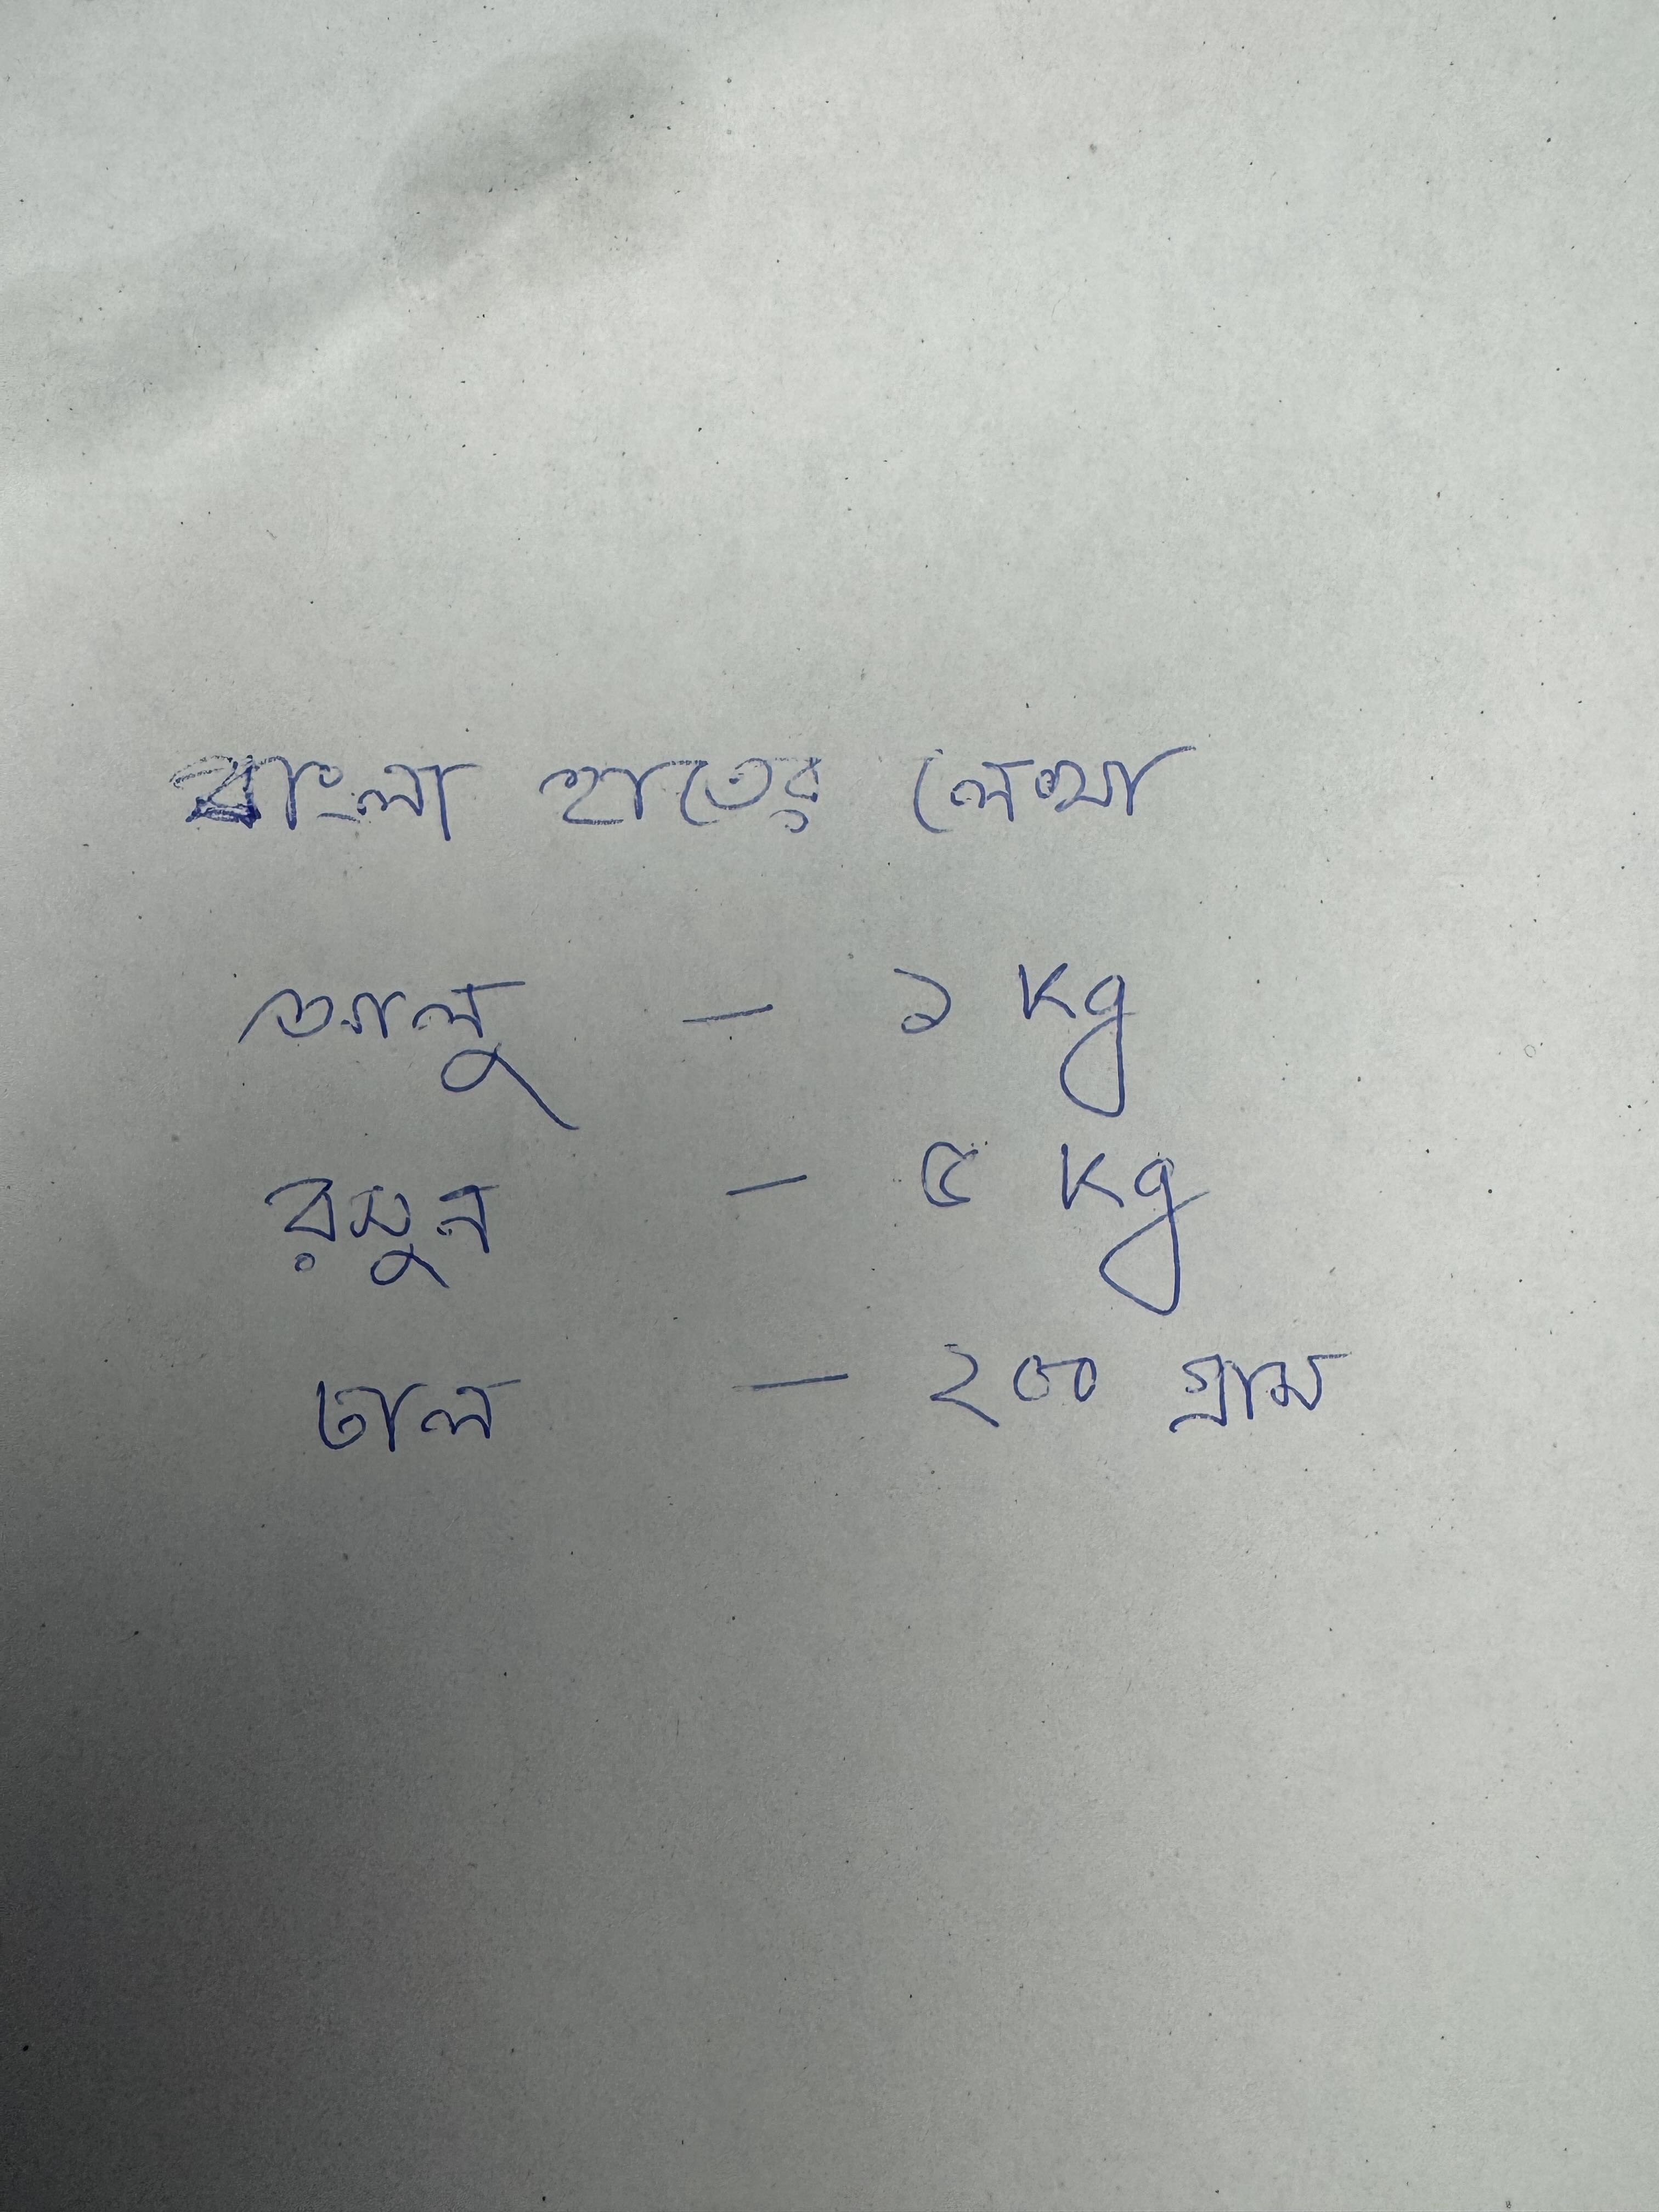 বাংলা হাতের লেখা
আলু - ১ kg
রসুন - ৫ kg
ডাল - ২০০ গ্রাম